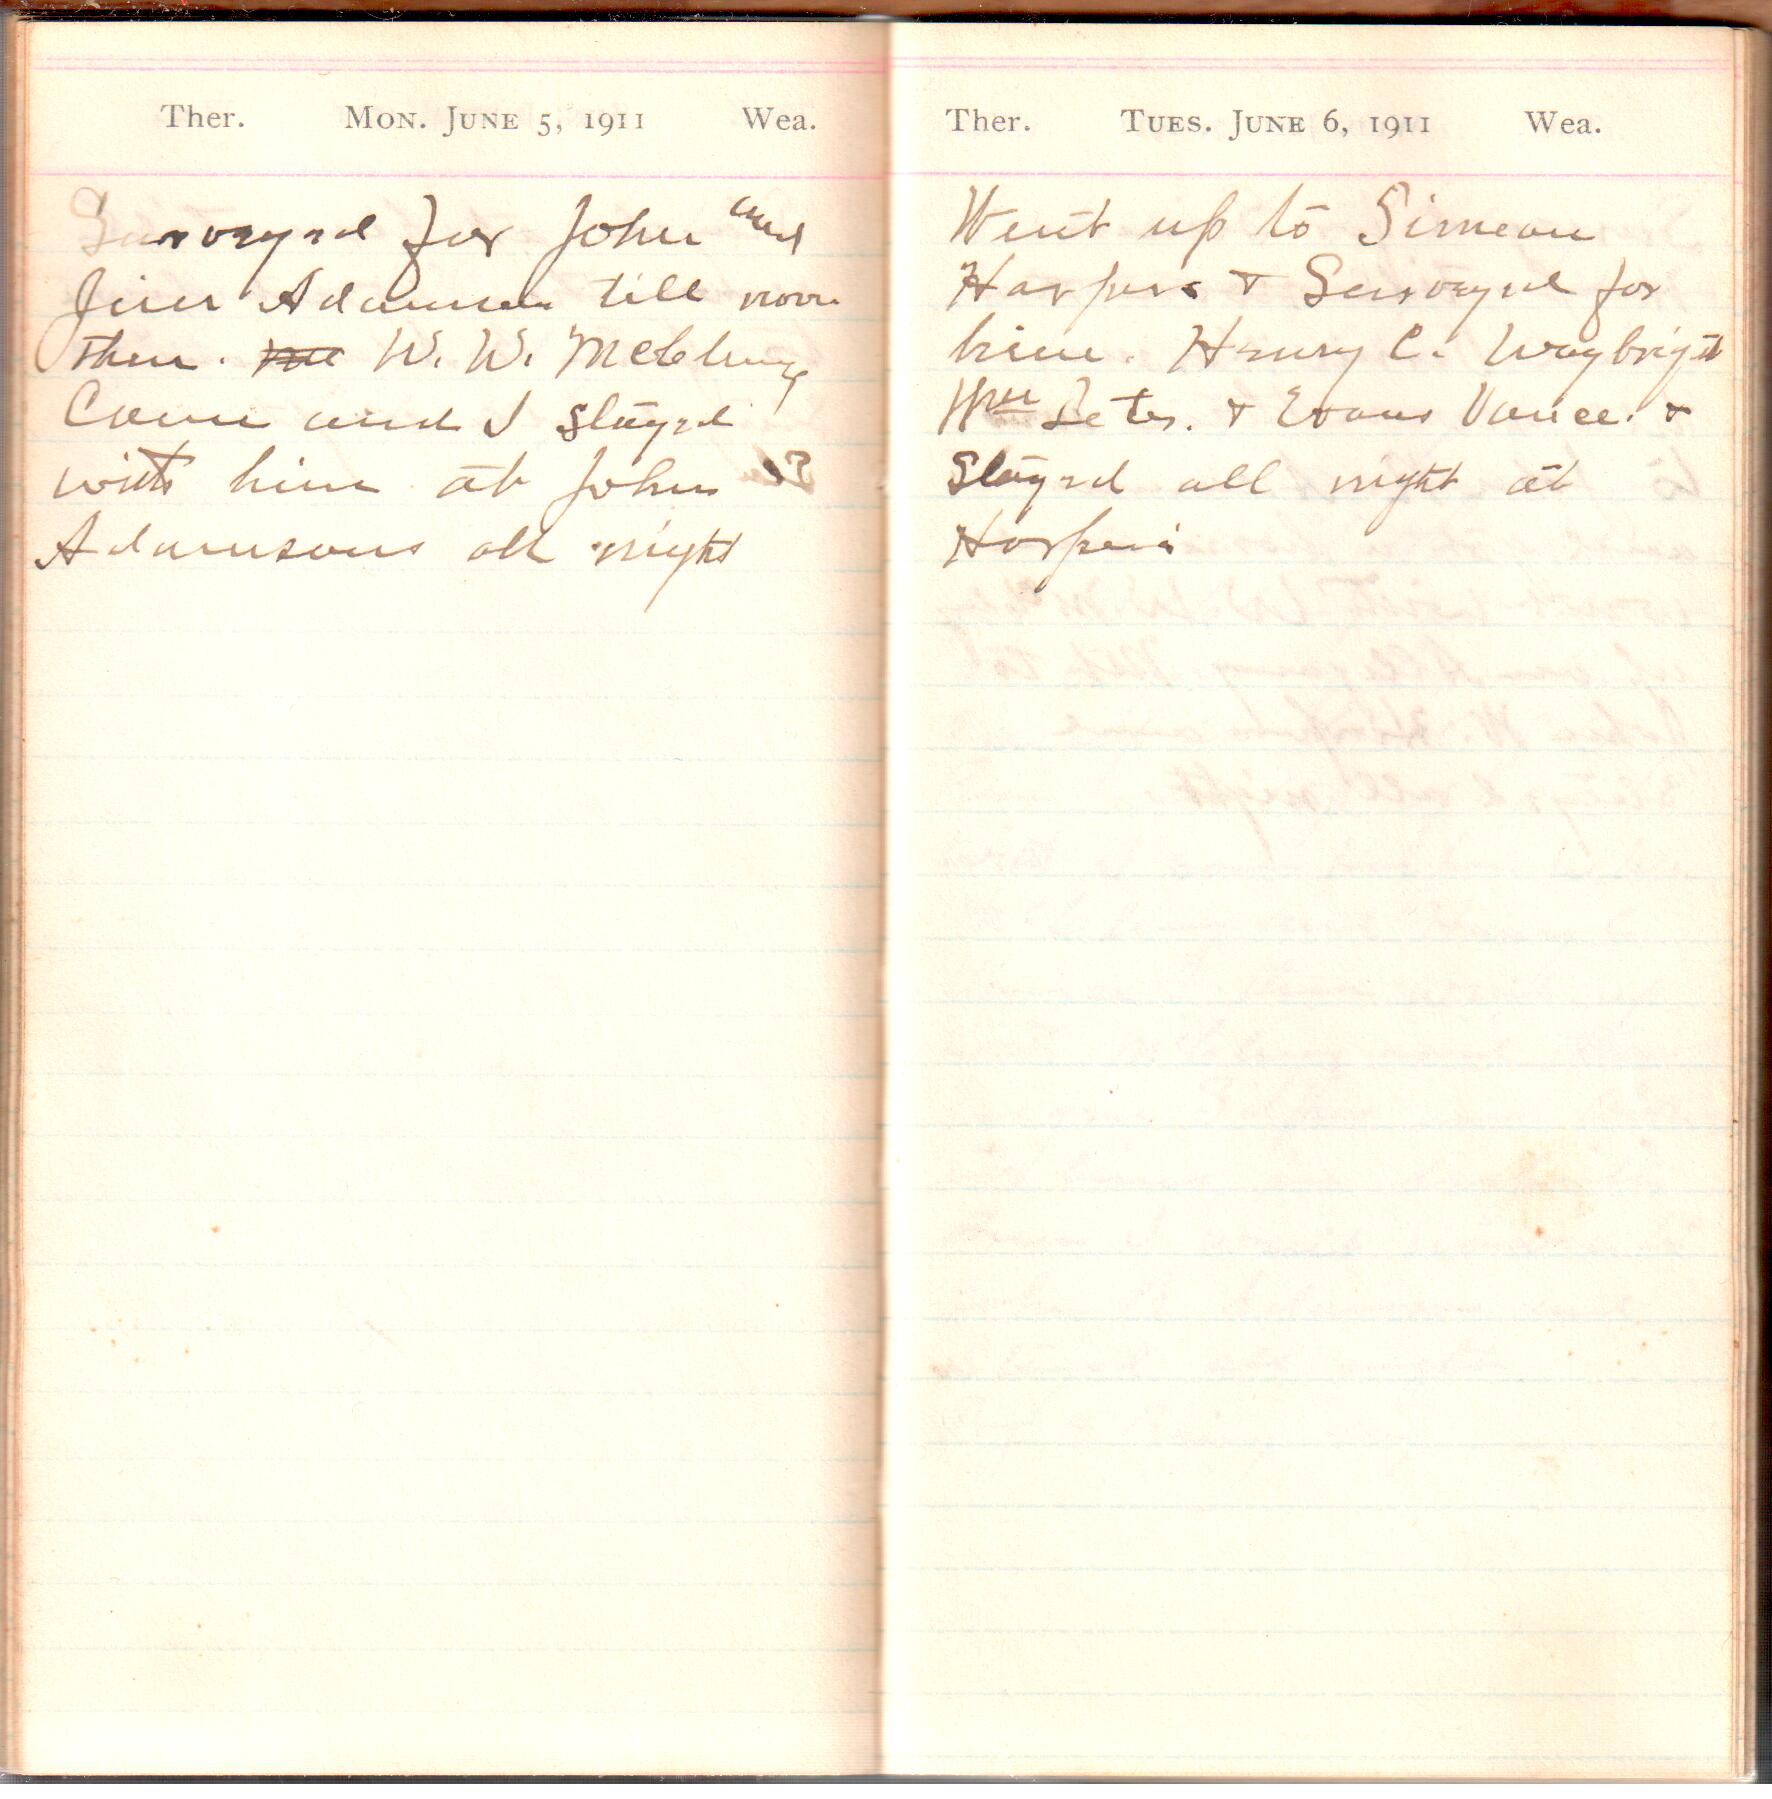 Ther. Mon. June 5, 1911 Wea.
Surveyed for John and
Jim Adamson till noon
then. W. W. McClung
Came and I Stayed
with him at John
Adamsons all night
Ther. Tues. June 6, 1911 Wea.
Went up to Simeon
Harpers & Surveyed for
him. Henry C. Waybright
Wm & Evans Vance. &
Stayed all night at
Harpers